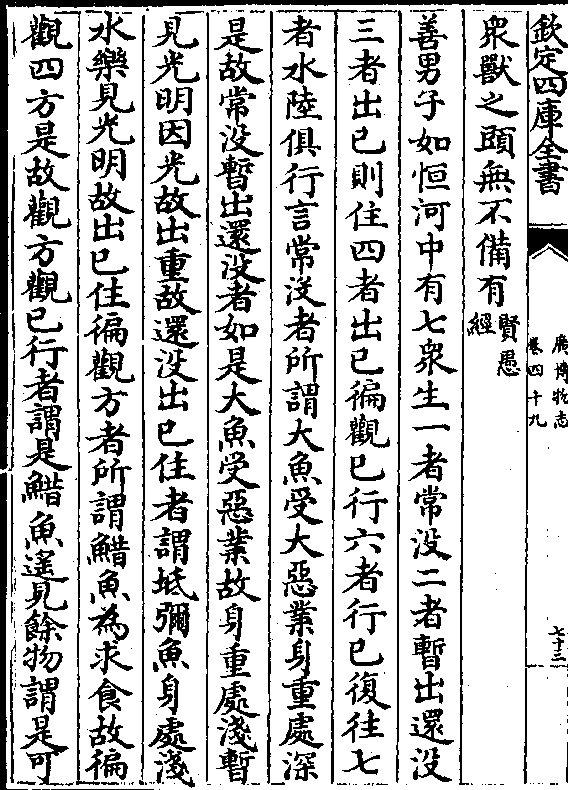 欽定四庫全書
廣博物志
卷四十九
七十二
衆獸之頭無不備有賢愚經
善男子如恒河中有七衆生一者常没二者暫出還没
三者出已則住四者出已徧觀已行六者行已復往七
者水陸俱行言常没者所謂大魚受大惡業身重處深
是故常没暫出還没者如是大魚受惡業故身重處淺暫
見光明因光故出重故還没出已住者謂坻彌魚身處淺
水樂見光明故出已住徧觀方者所謂鯌魚為求食故徧
觀四方是故觀方觀已行者謂是鯌魚遙見餘物謂是可